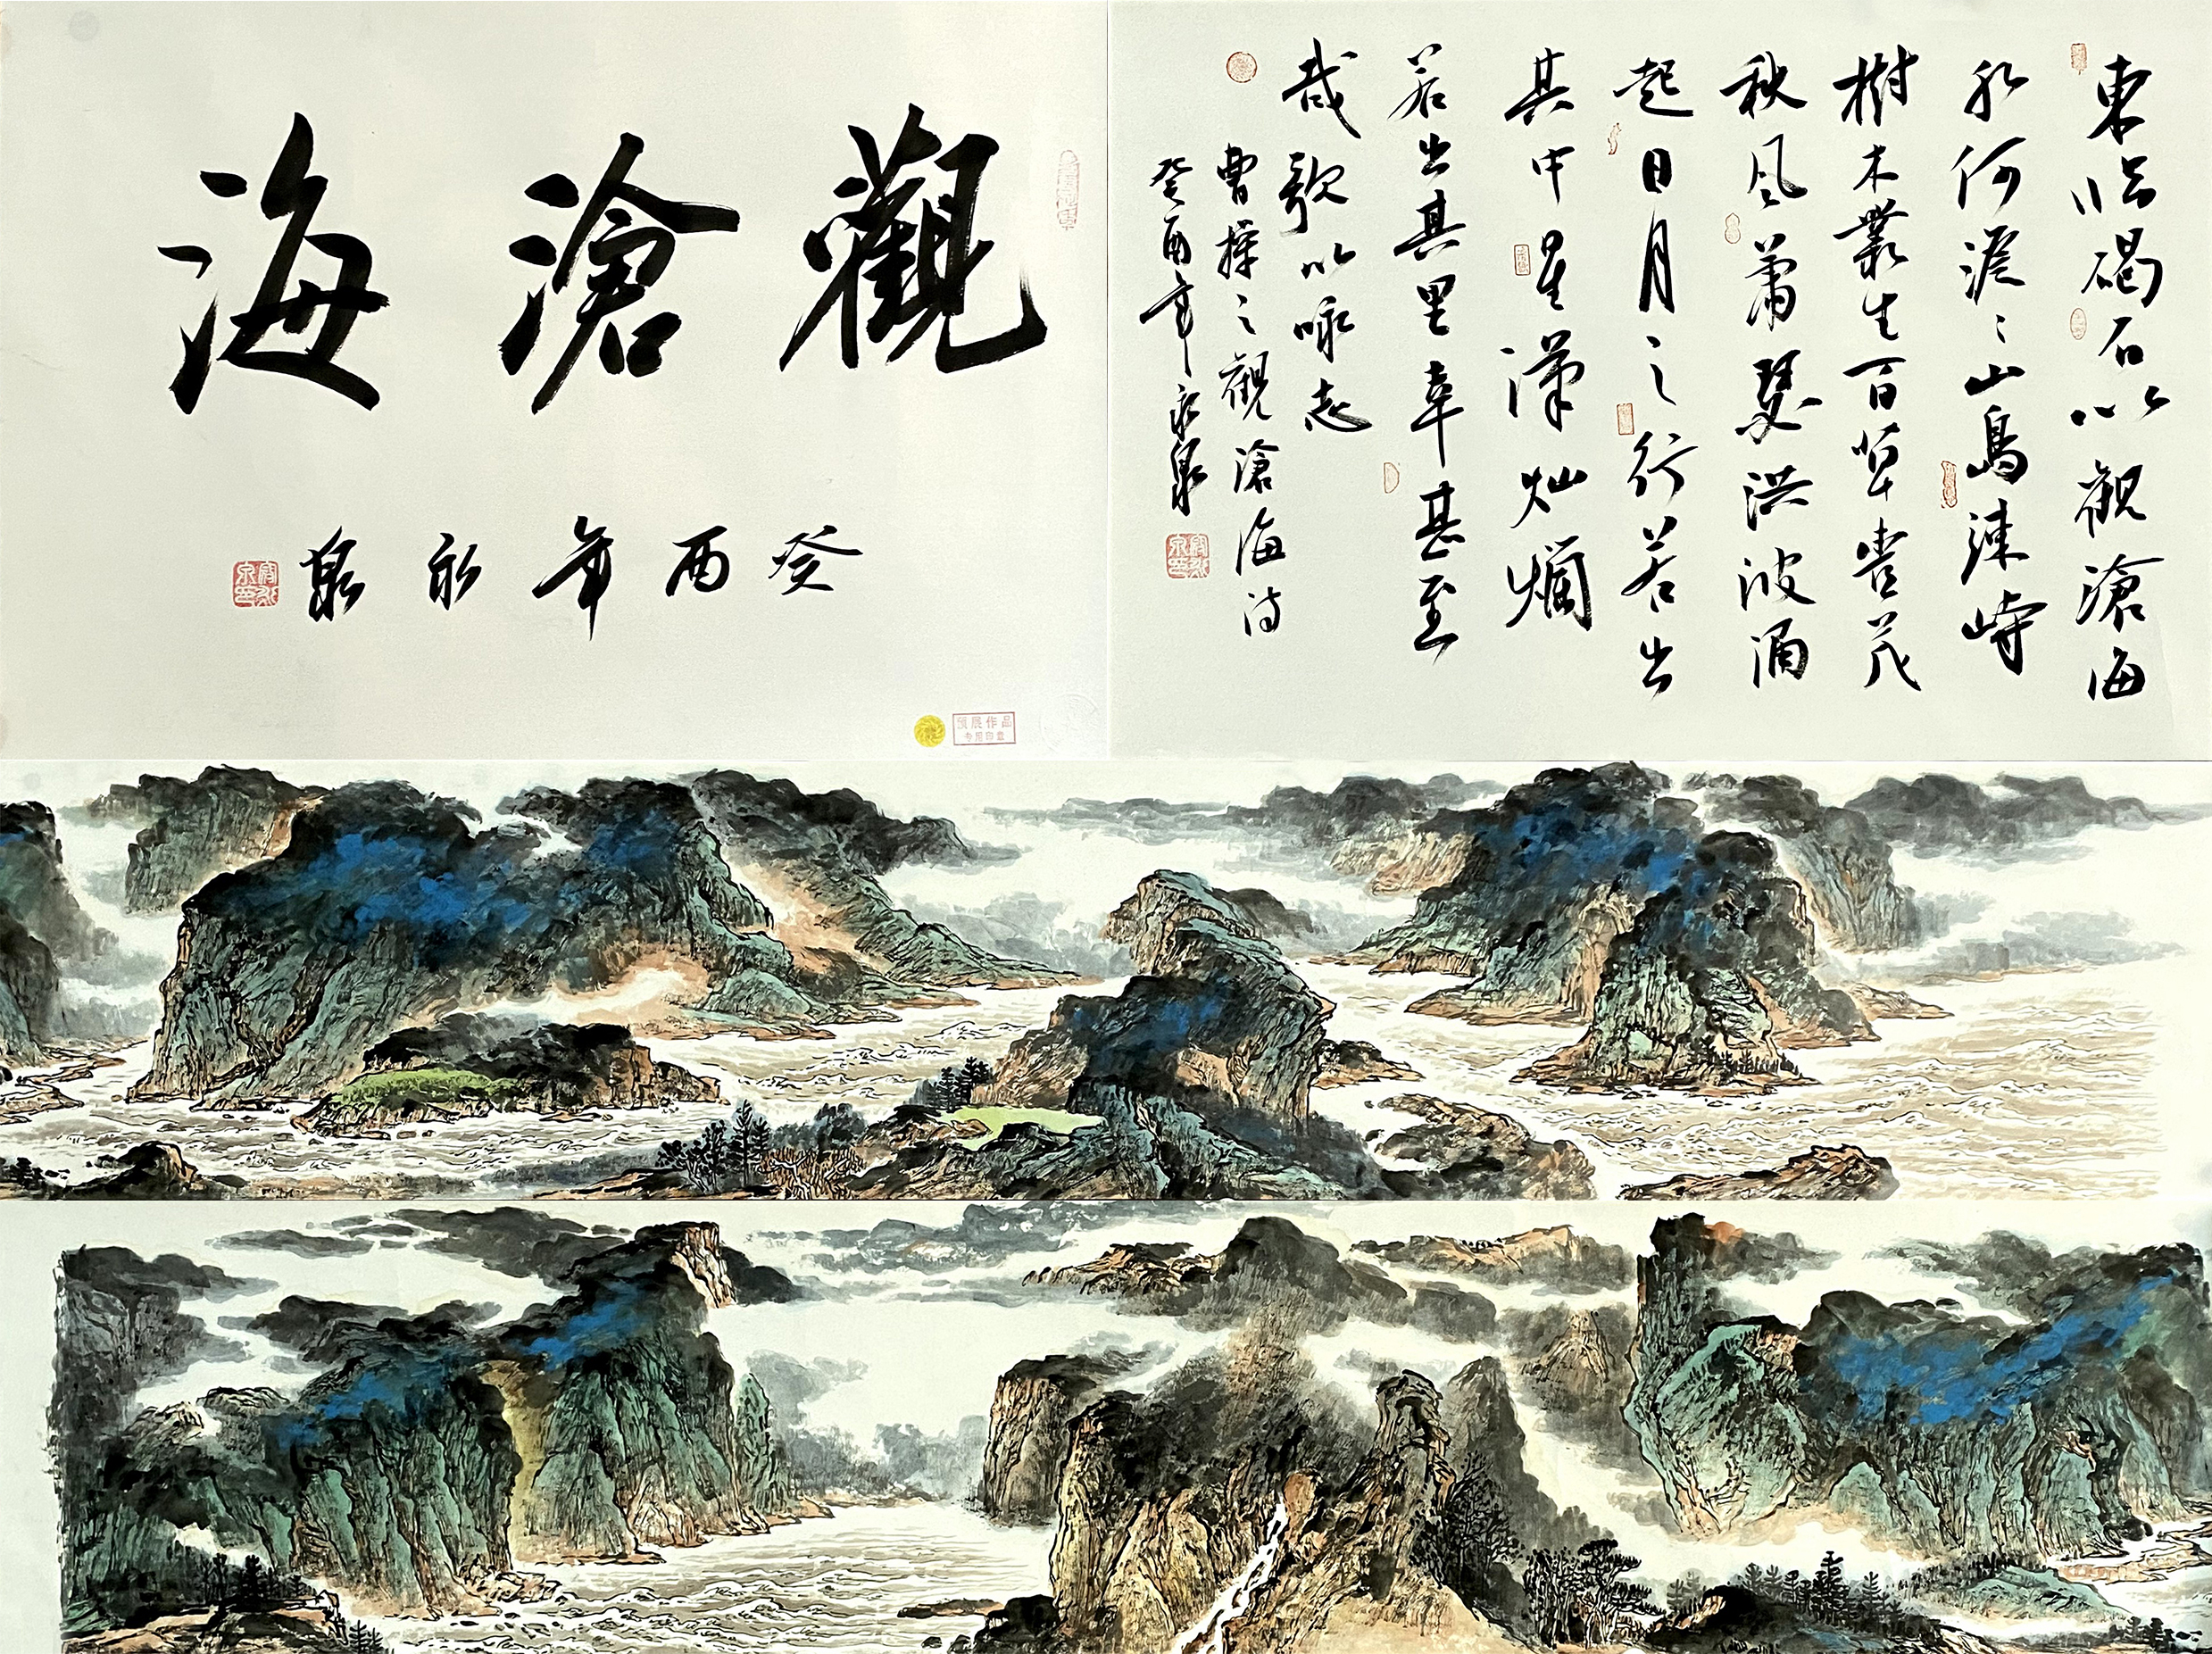 觀滄海
癸酉年永泉
预展作品
专用印章
東临碣石以觀滄海
水何澹々山島竦峙
樹木叢生百草豊茂
秋风萧瑟洪波涌
起日月之行若出
其中星漢灿爛
若出其里幸甚至
哉歌以咏志
曹操之觀滄海诗
癸酉年永泉